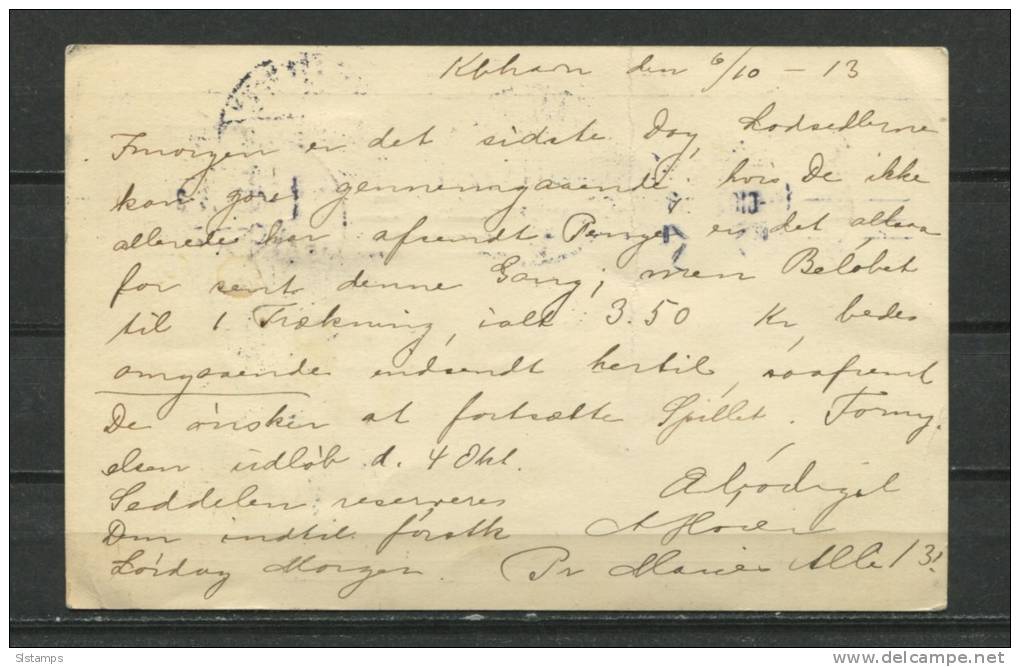 Kbhavn den 6/10 - 13
Imorgen er det sidste Dag, Lodsedlerne
kan gøres gennemgaaende, hvis De ikke
allerede har afsendt Penge er det altsaa
for sent denne Gang; men Beløbet
til 1 Trækning, ialt 3.50 Kr, bedes
omgaaende indsendt hertil, saafremt
De ønsker at fortsætte Spillet. Forny-
elsen udløb d. 4 Okt.
Seddelen reserveres
Dem indtil førstk
Lørdag Morgen.
Ærbødigst
Pr Maries Allé 13
Slstamps
www.delcampe.net